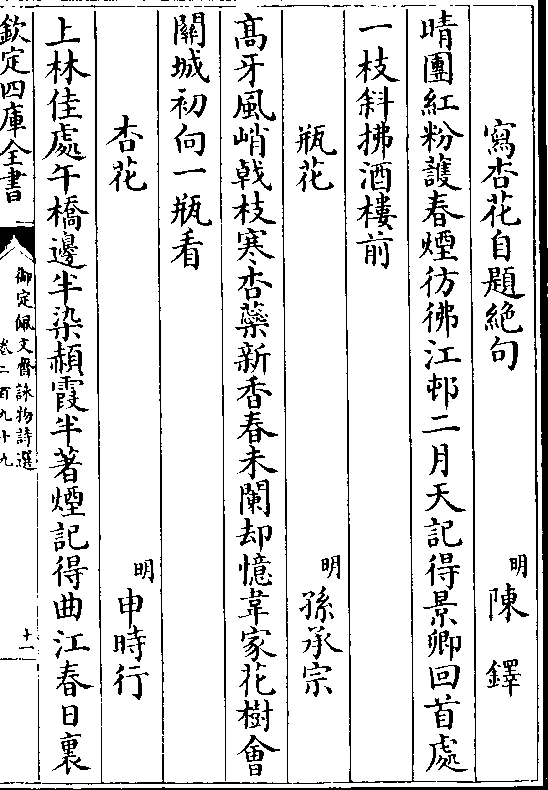 寫杏花自題絶句
明陳鐸
晴團紅粉護春煙彷彿江邨二月天記得景卿回首處
一枝斜拂酒樓前
瓶花
明孫承宗
高牙風峭戟枝寒杏蘂新香春未闌却憶韋家花樹會
關城初向一瓶看
杏花
明申時行
上林佳處午橋邊半染赬霞半著煙記得曲江春日裏
欽定四庫全書
御定佩文齋詠物詩選
卷二百九十九
十一